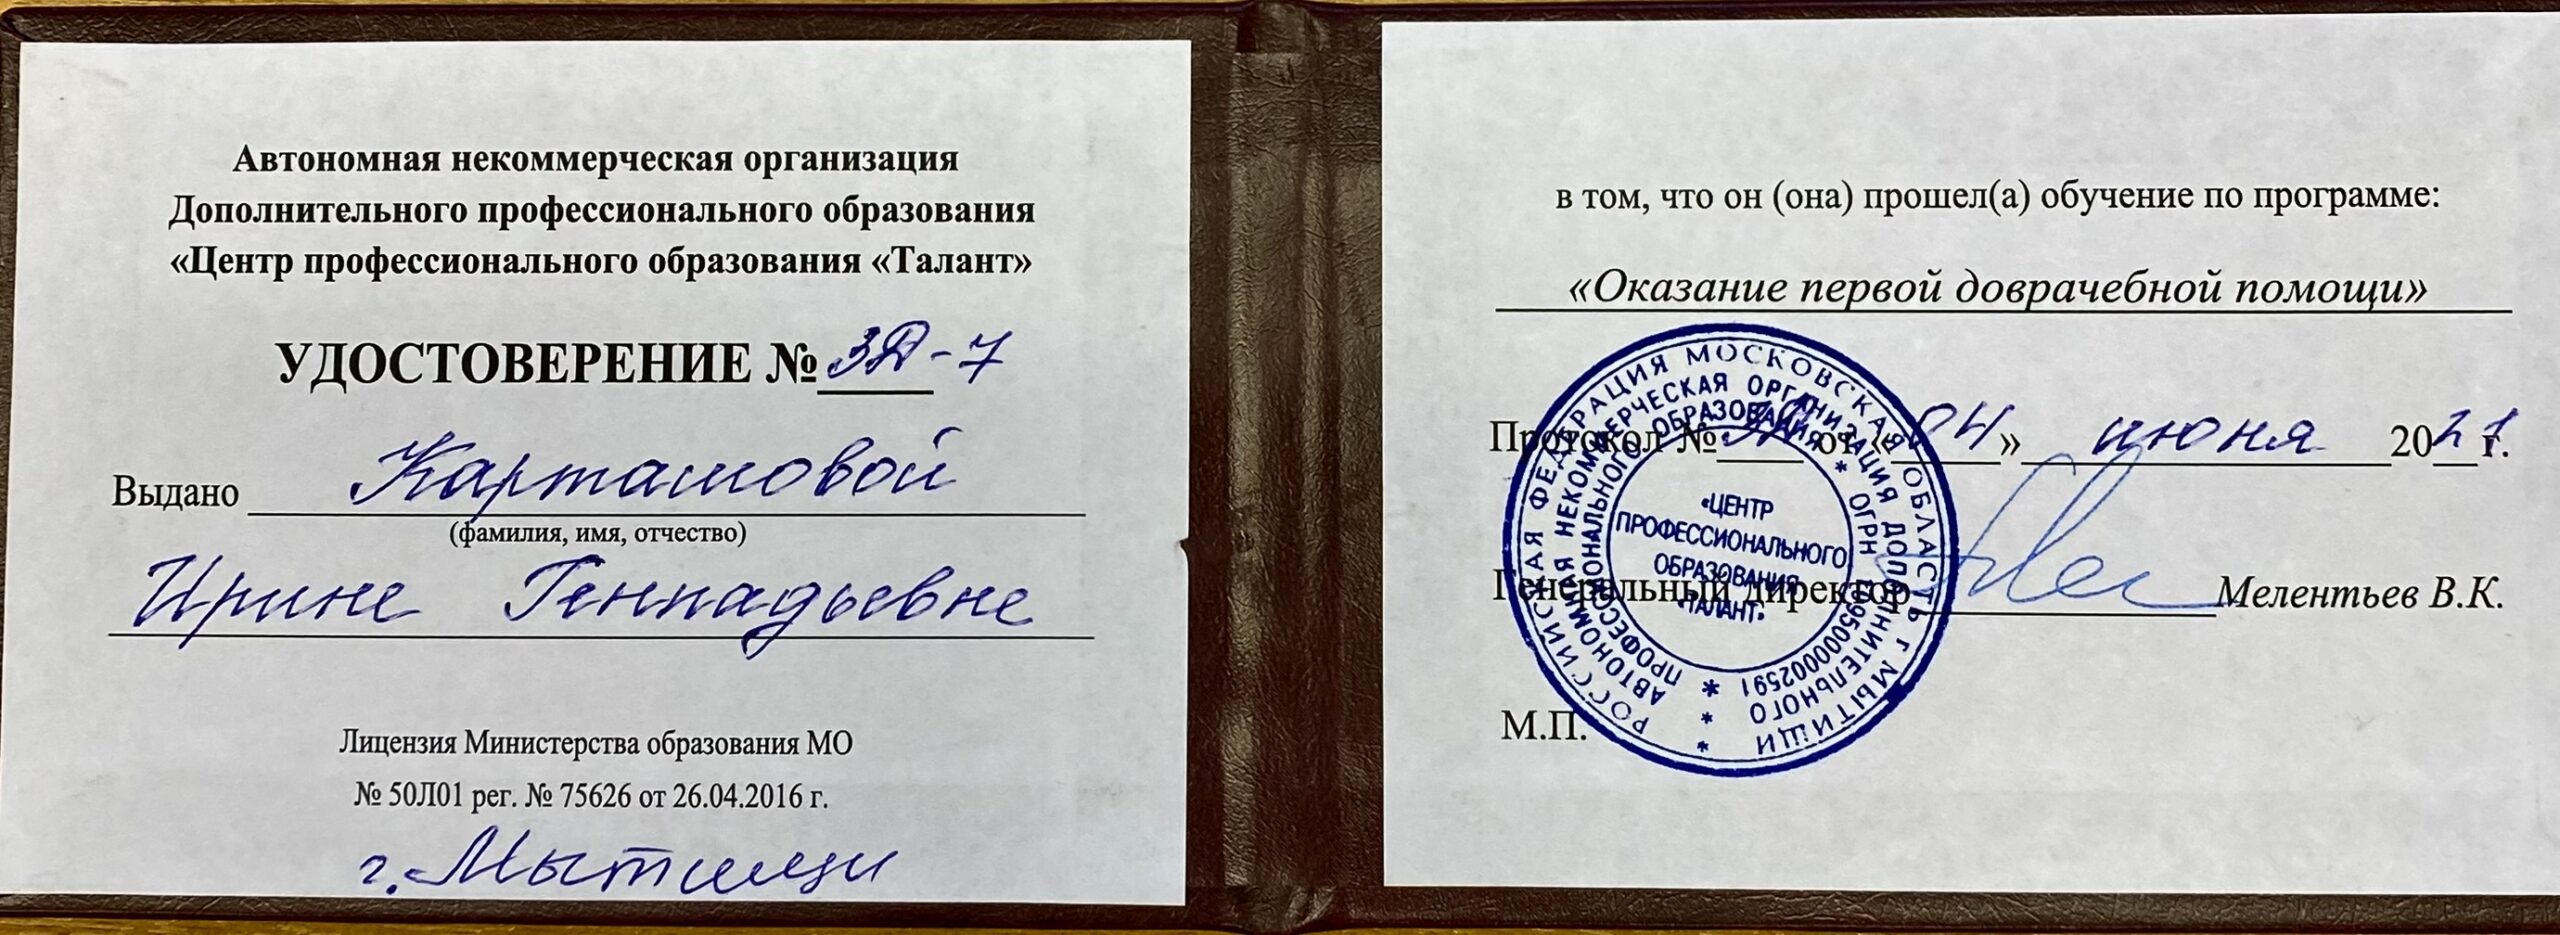 Автономная некоммерческая организация
Дополнительного профессионального образования
«Центр профессионального образования «Талант»
УДОСТОВЕРЕНИЕ № -7
Выдано Карташовой
(фамилия, имя, отчество)
Ирине Геннадьевне
Лицензия Министерства образования МО
№ 50Л01 рег. № 75626 от 26.04.2016 г.
г. Мытищи
в том, что он (она) прошел(а) обучение по программе:
«Оказание первой доврачебной помощи»
Протокол № от «04» июня 2021 г.
Генеральный директор Мелентьев В.К.
М.П.
РОССИЙСКАЯ ФЕДЕРАЦИЯ МОСКОВСКАЯ ОБЛАСТЬ г МЫТИЩИ
АВТОНОМНАЯ НЕКОММЕРЧЕСКАЯ ОРГАНИЗАЦИЯ ДОПОЛНИТЕЛЬНОГО
ПРОФЕССИОНАЛЬНОГО ОБРАЗОВАНИЯ * ОГРН
«ЦЕНТР
ПРОФЕССИОНАЛЬНОГО
ОБРАЗОВАНИЯ
«ТАЛАНТ»